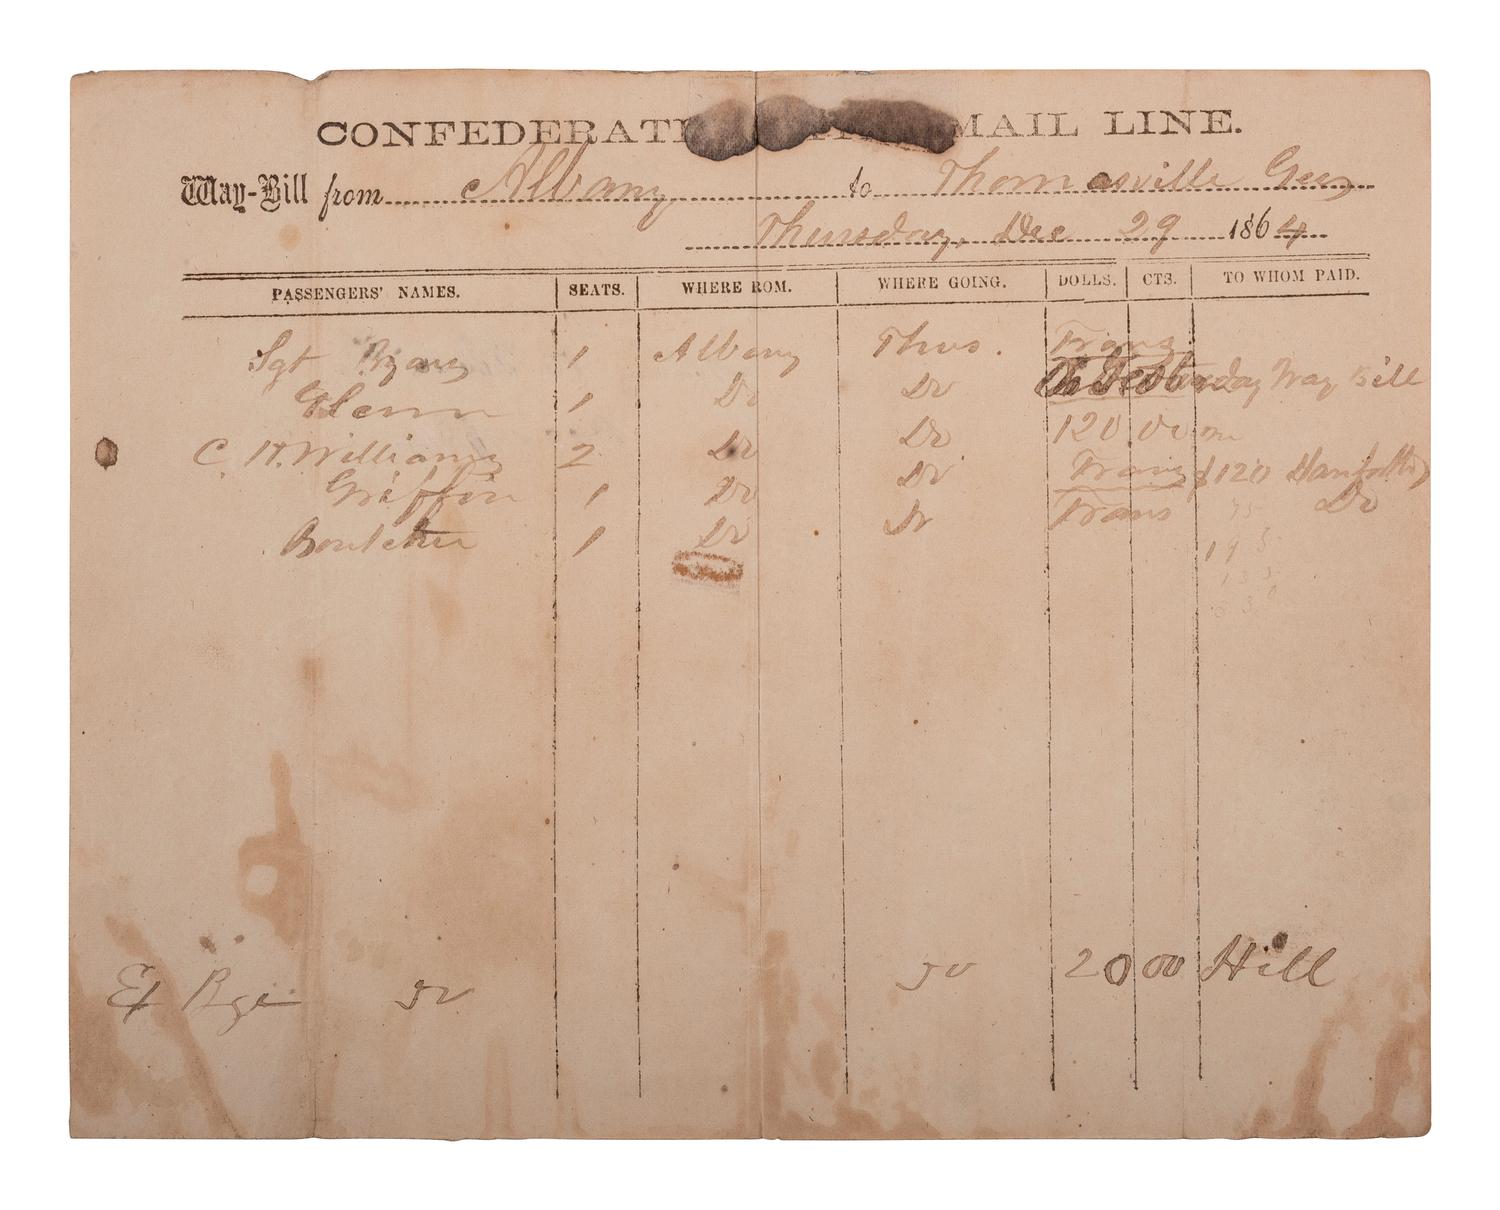 CONFEDERATE MAIL LINE.
Way-Bill from Albany to Thomasville Geo
Thursday, Dec 29 1864
PASSENGERS' NAMES. SEATS. WHERE ROM. WHERE GOING. DOLLS. CTS. TO WHOM PAID.
Sgt 1 Albany Thos. Trans
Glenn 1 Do Do Way Bill
C. H. Williams 2 Do Do 120 00
Griffin 1 Do Do Trans $120
1 Do Do Trans Do
75
195
135
Ex 20 00 Hill